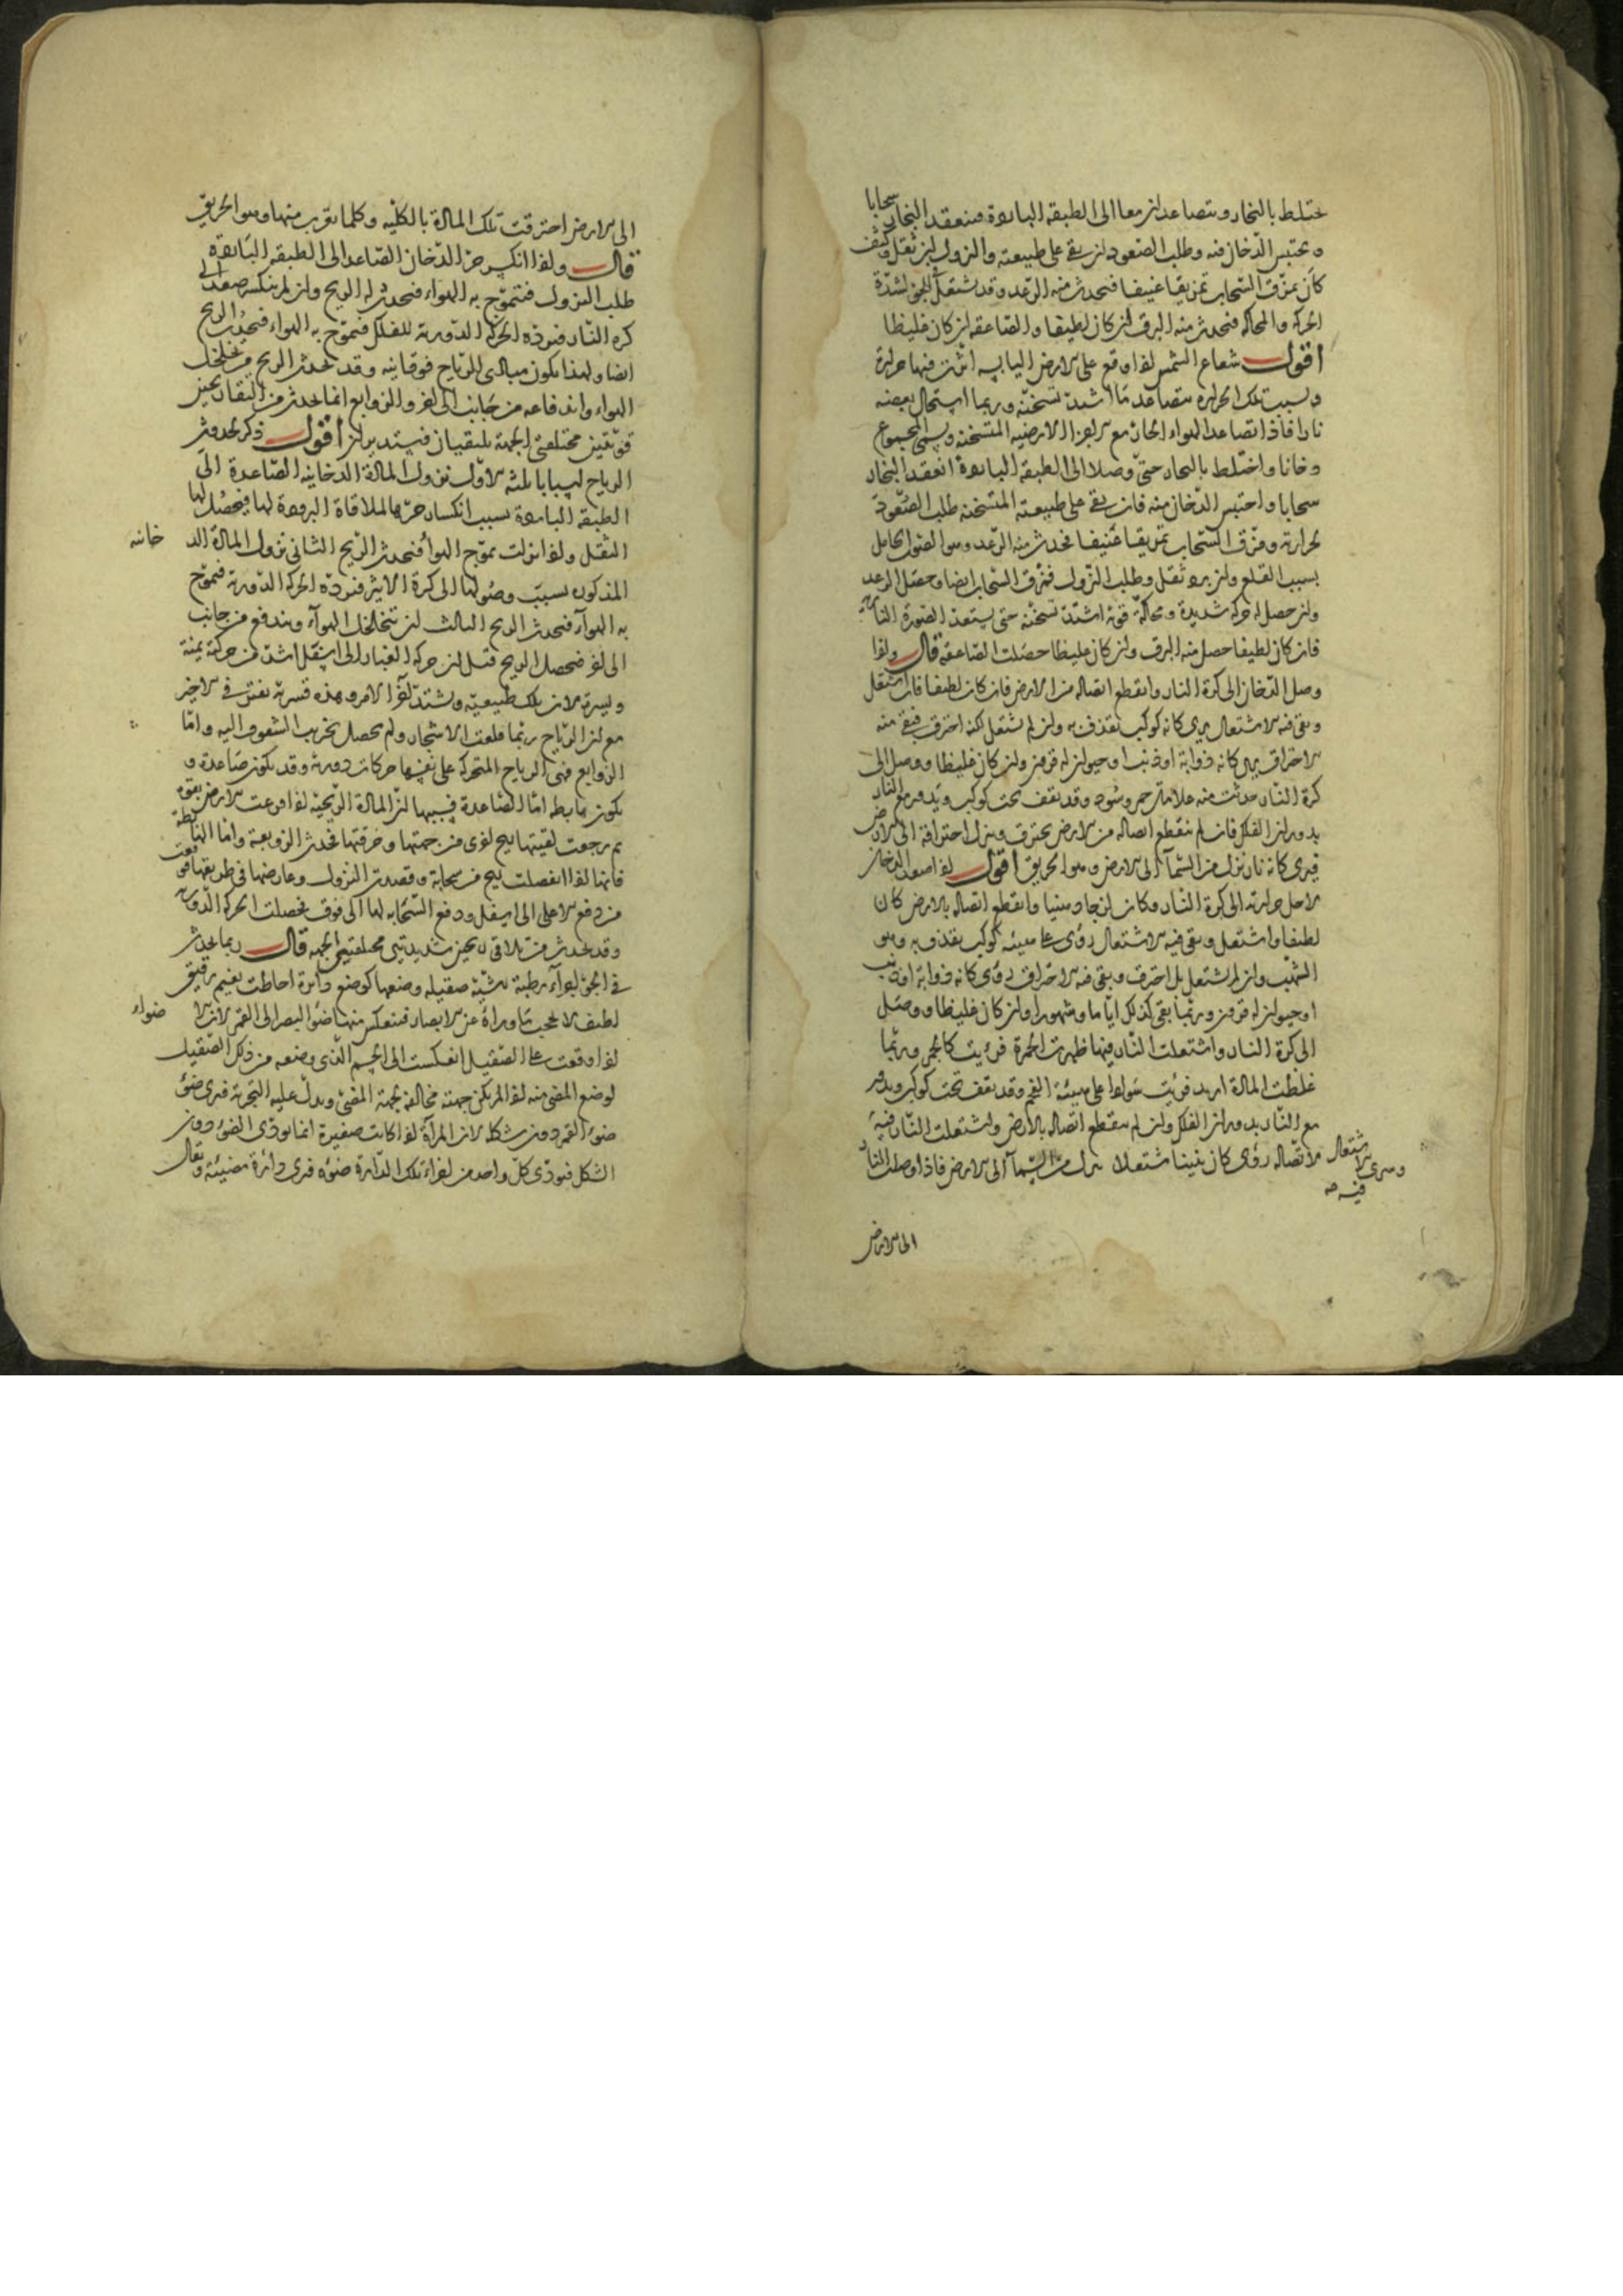 يختلط بالبخار ويتصاعدان معا الى الطبقة الباردة فينعقد البخار سحابا
ويحتبس الدخان فيه وطلب الصعود ان بقى على طبيعته والنزول ان ثقل وكيف
كان يمزق السحاب تمزيقا عنيفا فيحدث منه الرعد وقد تشتعل لشدة
الحركة والمحاكة فيحدث منه البرق ان كان لطيفا والصاعقة ان كان غليظا
اقول شعاع الشمس اذا وقع على الارض اليابسة اثرت فيها حرارة
وبسبب تلك الحرارة يتصاعد ما اشتد تسخنه وربما استحال بعضه
نارا فاذا تصاعد الهواء الحار مع الاجزاء الارضية المتسخنة ويسمى المجموع
دخانا واختلط بالبخار حتى وصلا الى الطبقة الباردة انعقد البخار
سحابا واحتبس الدخان فيه فان بقى على طبيعته المتسخنة طلب الصعود
لحرارته ومزق السحاب تمزيقا عنيفا فحدث منه الرعد وهو الصوت الحاصل
بسبب القلع وان برد ثقل وطلب النزول فمزق السحاب ايضا وحصل الرعد
وان حصل له حركة شديدة ومحاكة قوية اشتد تسخنه حتى يستعد الصورة النارية
فان كان لطيفا حصل منه البرق وان كان غليظا حصلت الصاعقة قال واذا
وصل الدخان الى كرة النار وانقطع اتصاله من الارض فان كان لطيفا فان اشتعل
وبقى فيه الاشتعال يرى كانه كوكب يقذف به وان لم يشتعل لكنه احترق فبقى فيه
الاحتراق يرى كانه ذوابة او ذنب او حيوان له قرون وان كان غليظا ووصل الى
كرة النار حدثت منه علامات حمر وسود وقد يقف تحت كوكب ويدور مع النار
بدوران الفلك فان لم ينقطع اتصاله من الارض يحترق وينزل احتراقه الى الارض
فيرى كانه نار تنزل من السماء الى الارض وهو الحريق اقول اذا صعد الدخان
لاجل حرارته الى كرة النار وكان وانقطع اتصاله بالارض كان
لطيفا واشتعل وبقى فيه الاشتعال رؤى على هيئة كوكب يقذف به وهو
الشهب وان لم يشتعل بل احترق وبقى فيه الاحتراق رؤى كانه ذوابة او ذنب
او حيوان له قرون وربما بقى كذلك اياما وشهورا وان كان غليظا ووصل
الى كرة النار واشتعلت النار فيها ظهرت الحمرة فرئيت كالجمر وربما
غلظت المادة ازيد فرئيت سوادا على هيئة الفحم وقد يقف تحت كوكب ويدور
مع النار بدوران الفلك وان لم ينقطع اتصاله بالارض واشتعلت النار فيه
لاتصاله رؤى كان تنينا مشتعلا نزل من السماء الى الارض فاذا وصلت النار
وسرى الاشتعال فيه صح
الى الارض
الى الارض احترقت تلك المادة بالكلية وكلما تقرب منها وهو الحريق
قال واذا انكسر حر الدخان الصاعد الى الطبقة الباردة
طلب النزول فيتموج به الهواء فيحدث له الريح وان لم ينكسر صعد الى
كرة النار فترده الحركة الدورية للفلك فيتموج به الهواء فيحدث الريح
ايضا ولهذا يكون مبادى الرياح فوقانية وقد يحدث الريح من تخلخل
الهواء واندفاعه من جانب الى اخر والزوابع انما يحدث من التقاء ريحين
قويتين مختلفتى الجهة يلتقيان فيستديران اقول ذكر لحدوث
الرياح اسبابا ثلثة الاول نزول المادة الدخانية الصاعدة الى
الطبقة الباردة بسبب انكسار حرها لملاقاة البرودة لها فيحصل لها
الثقل واذا نزلت تموج الهواء فيحدث الريح الثانى نزول المادة الد
خانية
المذكورة بسبب وصولها الى كرة الاثير فترده الحركة الدورية فيموج
به الهواء فيحدث الريح الثالث ان تتخلخل الهواء ويندفع من جانب
الى اخر فيحصل الريح قيل ان حركة الغبار الى اسفل اشد من حركته يمنة
ويسرة لان تلك طبيعية وتشتد اخر الامر وهذه قسرية تفتر فى الاخر
مع ان الرياح ربما قلعت الاشجار ولم يحصل تخريب السقوف اليه واما
الزوابع فهى الرياح المتحركة على نفسها حركات دورية وقد تكون صاعدة و
تكون هابطة اما الصاعدة فسببها ان المادة الريحية اذا قرعت الارض بقوة
ثم رجعت لقيتها ريح اخرى من جهتها وحرفتها فحدث الزوبعة واما الهابطة
فانها اذا انفصلت ريح من سحابة وقصدت النزول وعارضها فى طريقها
من دفع الاعلى الى اسفل ودفع السحابة لها الى فوق فحصلت الحركة الدورية
وقد يحدث من تلاقى ريحين شديدتين مختلفتى الجهة قال ربما يحدث
فى الجو اجزاء رطبة رشية صقيلة وضعها كوضع دائرة احاطت بغيم رقيق
لطيف لا يحجب ما وراءه عن الابصار فينعكس منها ضوء البصر الى القمر لان الا
ضواء
اذا وقعت على الصقيل انعكست الى الجسم الذى وضعه من ذلك الصقيل
كوضع المضئ منه اذا لم يكن جهته مخالفة لجهة المضئ ويدل عليه التجربة فيرى ضوء
ضوء القمر دون شكله لان المرآة اذا كانت صغيرة انما تؤدى الضوء دون
الشكل فيؤدى كل واحد من اجزاء تلك الدائرة ضوءه فيرى دائرة مضيئة ويقال